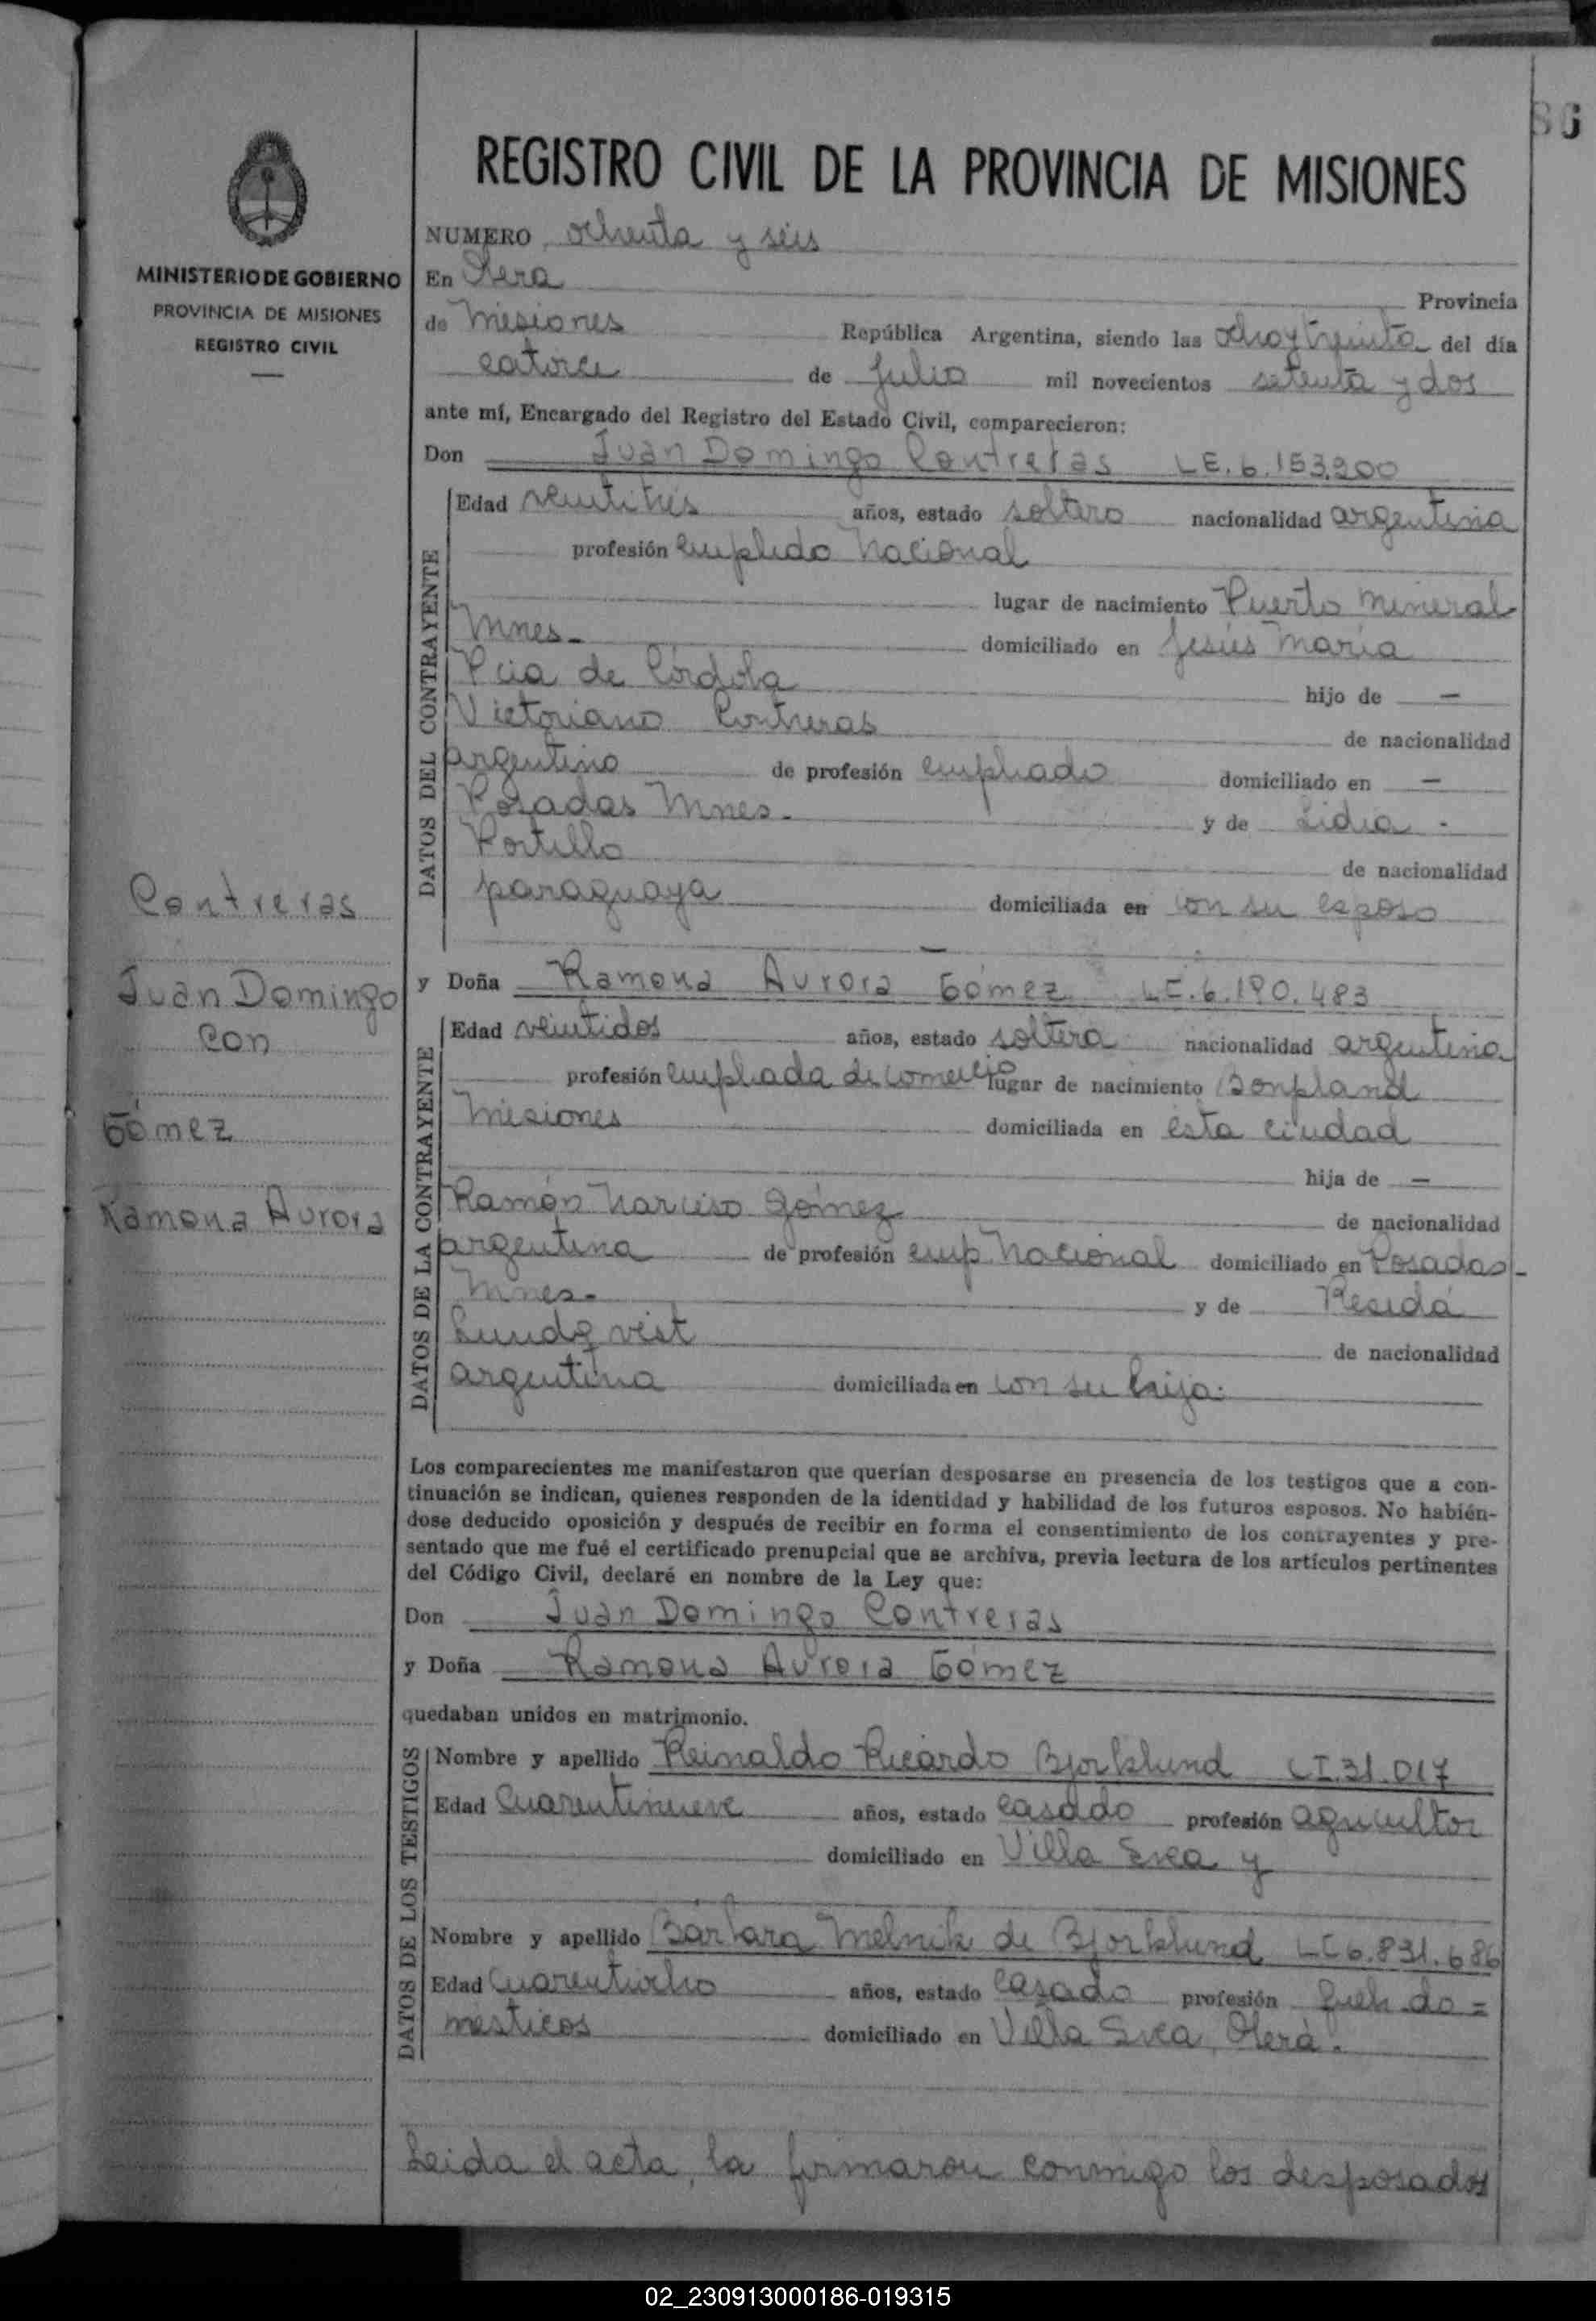 86
REGISTRO CIVIL DE LA PROVINCIA DE MISIONES
MINISTERIO DE GOBIERNO
PROVINCIA DE MISIONES
REGISTRO CIVIL
NUMERO ochenta y séis
En Oberá Provincia
de Misiones República Argentina, siendo las ocho y treinta del día
catorce de Julio mil novecientos setenta y dos
ante mí, Encargado del Registro del Estado Civil, comparecieron:
Don Juan Domingo Contreras LE. 6.153.200
DATOS DEL CONTRAYENTE
Edad veintitrés años, estado soltero nacionalidad argentina
profesión empledo Nacional
lugar de nacimiento Puerto Mineral
Mnes- domiciliado en Jesús María
Pcia de Córdoba hijo de —
Victoriano Contreras de nacionalidad
argentino de profesión empleado domiciliado en —
Posadas Mnes- y de Lidia -
Portillo de nacionalidad
paraguaya domiciliada en con su esposo
y Doña Ramona Aurora Gómez LC. 6.190.483
DATOS DE LA CONTRAYENTE
Edad veintidos años, estado soltera nacionalidad argentina
profesión empleada de comercio lugar de nacimiento Bonpland
Misiones domiciliada en esta ciudad
hija de —
Ramón Narciso Gómez de nacionalidad
argentina de profesión emp. Nacional domiciliado en Posadas-
Mnes- y de
Lundqvist de nacionalidad
argentina domiciliada en con su hija.
Contreras
Juan Domingo
con
Gómez
Ramona Aurora
Los comparecientes me manifestaron que querían desposarse en presencia de los testigos que a con-
tinuación se indican, quienes responden de la identidad y habilidad de los futuros esposos. No habién-
dose deducido oposición y después de recibir en forma el consentimiento de los contrayentes y pre-
sentado que me fué el certificado prenupcial que se archiva, previa lectura de los artículos pertinentes
del Código Civil, declaré en nombre de la Ley que:
Don Juan Domingo Contreras
y Doña Ramona Aurora Gómez
quedaban unidos en matrimonio.
DATOS DE LOS TESTIGOS
Nombre y apellido Reinaldo Ricardo Bjorklund CI.31.017
Edad Cuarentinueve años, estado casado profesión agricultor
domiciliado en Villa Svea y
Nombre y apellido Bárbara Melnik de Bjorklund LC 6.831.686
Edad Cuarentiocho años, estado casada profesión queh. do=
mesticos domiciliado en Villa Svea, Oberá.
Leida el acta, la firmaron conmigo los desposados
02_230913000186-019315